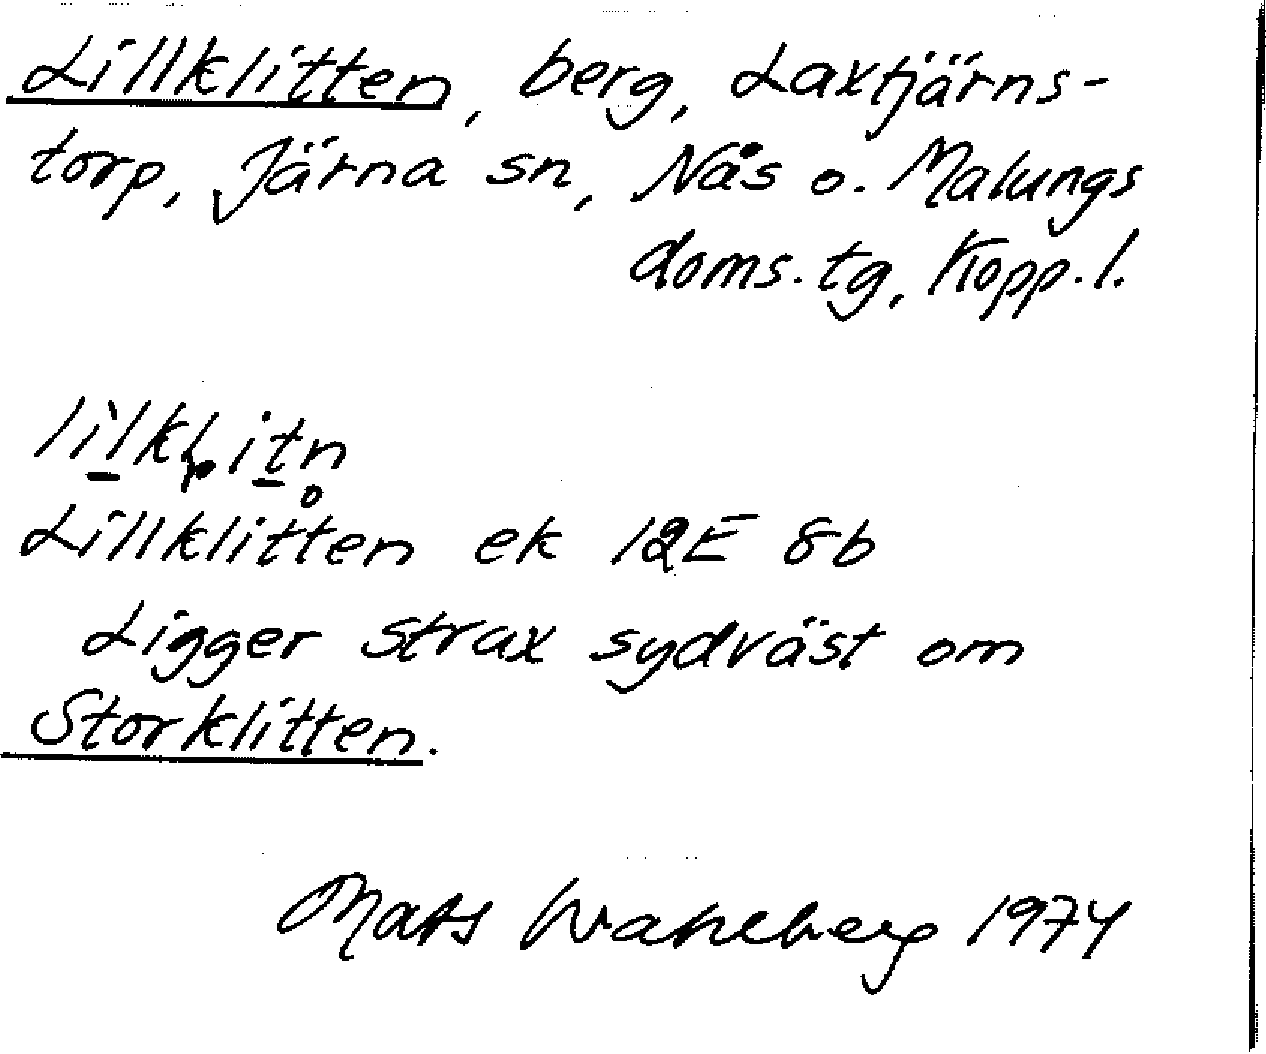 Lillklitten, berg, Laxtjärns-
torp, Järna sn, Nås o. Malungs
doms. tg, Kopp. l.
Lillklitten ek 12E 8b
Ligger strax sydväst om
Storklitten.
Mats Wahlberg 1974